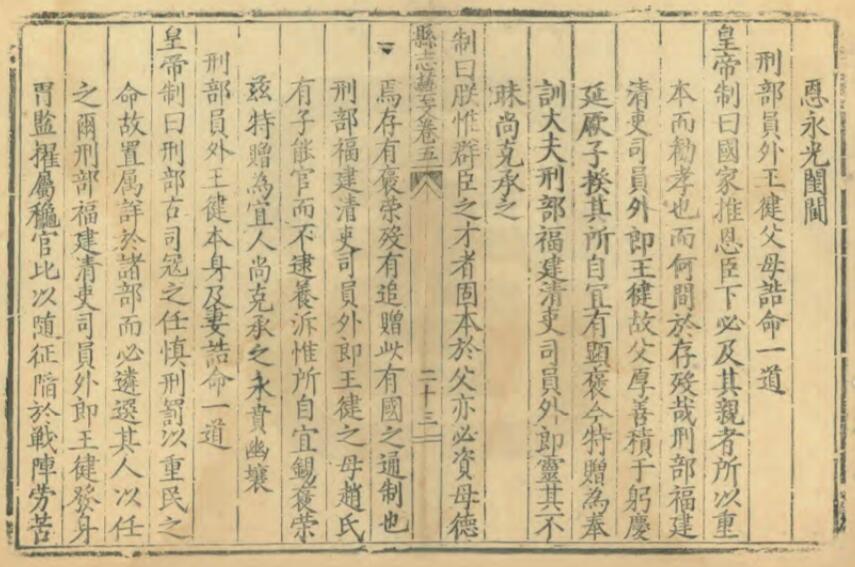 恩永光閨閫
刑部員外王健父母誥命一道
皇帝制曰國家推恩臣下必及其親者所以重
本而勸孝也而何間於存歿哉刑部福建
清吏司員外郎王健故父厚善積于躬慶
延厥子揆其所自宜有顯褒今特贈為奉
訓大夫刑部福建清吏司員外郎靈其不
昧尚克承之
制曰朕惟群臣之才者固本於父亦必資母德
縣志藝文卷五
二十三
焉存有褒荣歿有追贈此有國之通制也
刑部福建清吏司員外郎王健之母趙氏
有子能官而不逮養泝惟所自宜錫褒荣
茲特贈為宜人尚克承之永賁幽壤
刑部員外王健本身及妻誥命一道
皇帝制曰刑部古司冦之任慎刑罰以重民之
命故置属詳於諸部而必遴選其人以任
之爾刑部福建清吏司員外郎王健發身
胃監擢屬穐官比以随征陷於戰陣劳苦